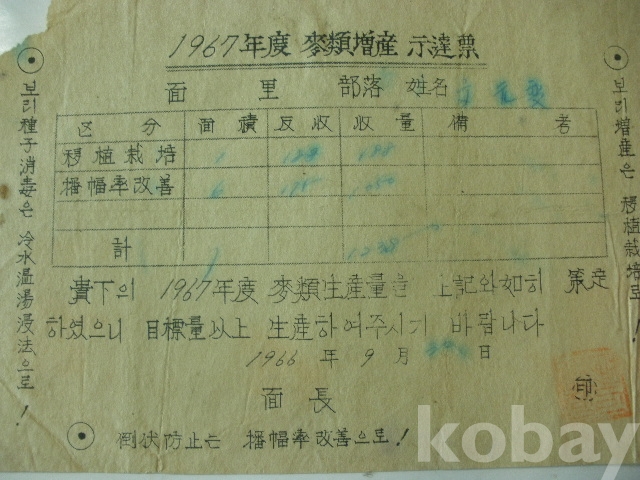 1967年度 麥類增産 示達票
面 里 部落 姓名
區分 面積 反收 收量 備考
移植栽培 1
播幅率改善 6
計
貴下의 1967年度 麥類生産量을 上記와如히 策定
하였으니 目標量以上 生産하여주시기 바랍나다
1966 年 9 月 日
面長 印
倒伏防止는 播幅率改善으로!
보리種子消毒은 冷水溫湯浸法으로!
보리增産은 移植栽培로!
kobay